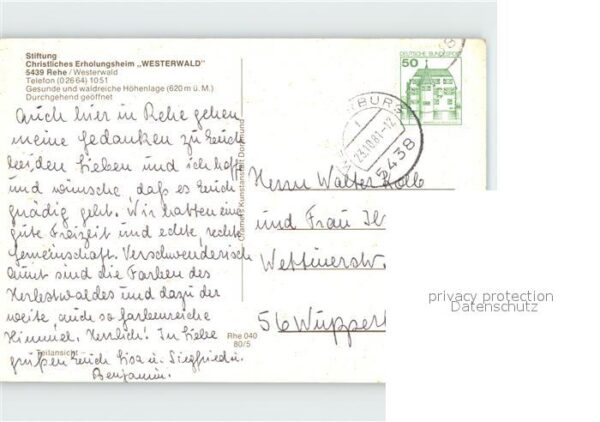 Stiftung
Christliches Erholungsheim „WESTERWALD"
5439 Rehe / Westerwald
Telefon (0 26 64) 10 51
Gesunde und waldreiche Höhenlage (620 m ü. M.)
Durchgehend geöffnet
DEUTSCHE BUNDESPOST
50
BURG
1
23.10.81-12
5438
Auch hier in Rehe gehen
meine Gedanken zu Euch
beiden Lieben und ich hoffe
und wünsche daß es Euch
gnädig geht. Wir hatten eine
gute Freizeit und echte, rechte
Gemeinschaft. Verschwenderisch
bunt sind die Farben des
Herbstwaldes und dazu der
weite, auch so farbenreiche
Himmel. Herrlich! In Liebe
grüßen Euch Lisa u. Siegfried u.
Benjamin.
Teilansicht
Rhe 040
80/5
Cramers Kunstanstalt Dortmund
Herrn Walter Kolb
und Frau
Wettinerstr.
56 Wuppert
privacy protection
Datenschutz